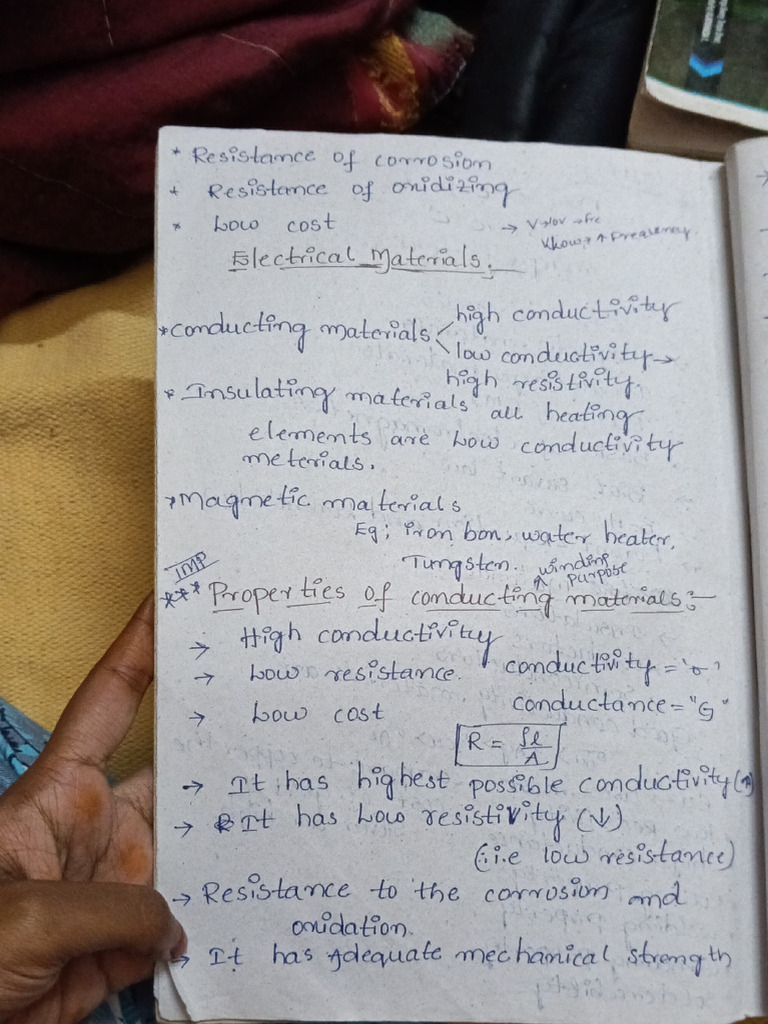 * Resistance of corrosion
* Resistance of onidizing
* Low cost
Electrical Materials:-
*conducting materials
high conductivity
low conductivity→
high resistivity.
* Insulating materials all heating
elements are Low conductivity
meterials.
*Magnetic materials
Eg; iron bon, water heater,
Tungsten.
winding
purpose
IMP
*** Properties of conducting materials:-
→ High conductivity
→ Low resistance. conductivity = 'σ'
→ Low cost conductance = "G"
R = ρl/A
→ It has highest possible conductivity(↑)
→ It has Low resistivity (↓)
(i.e low resistance)
→ Resistance to the corrosion and
onidation.
→ It has Adequate mechanical strength